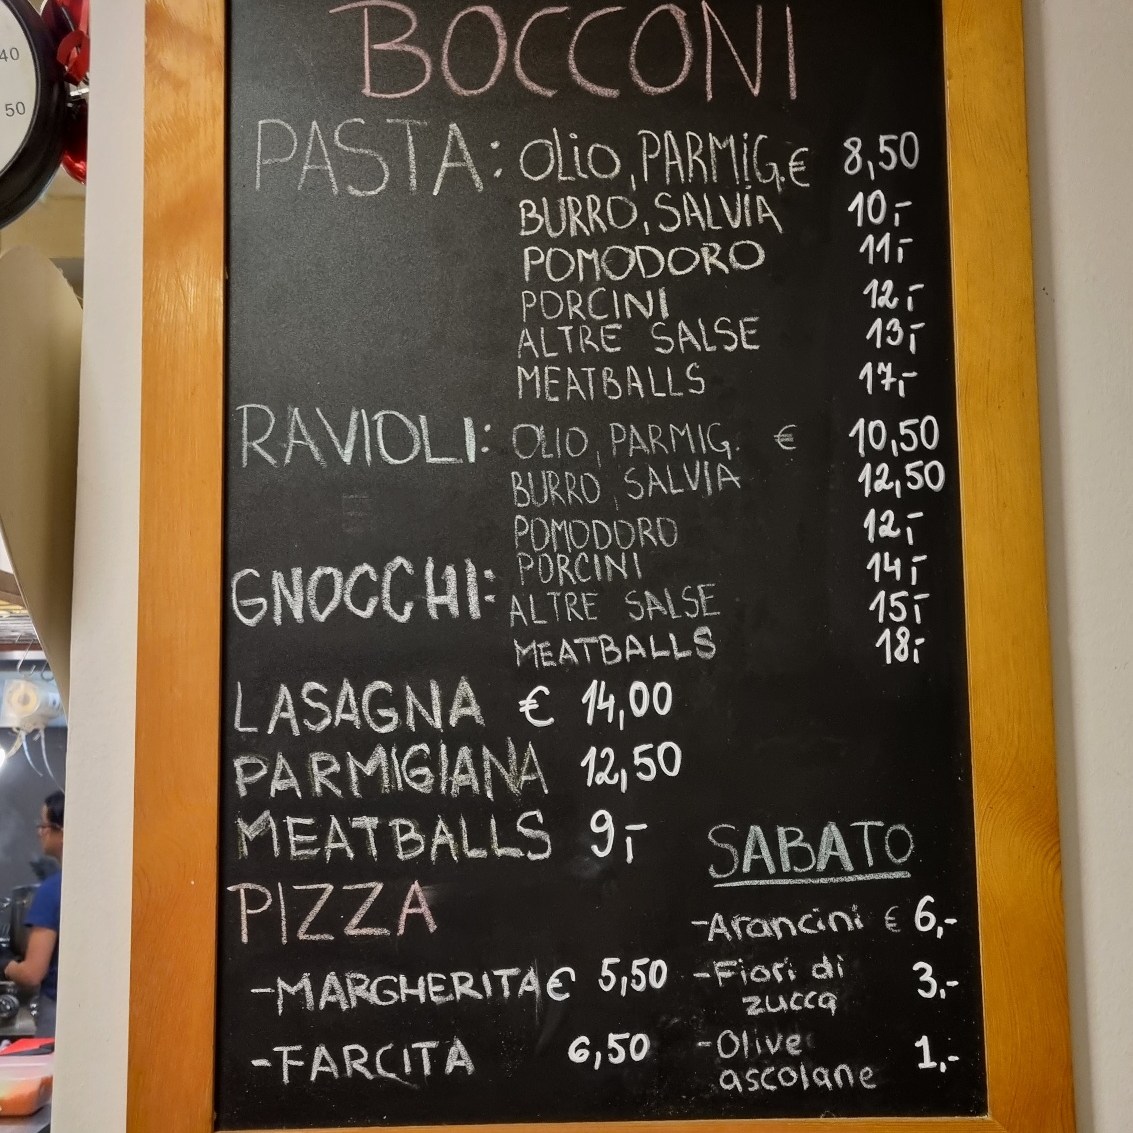 40
50
BOCCONI
PASTA: OLIO, PARMIG. € 8,50
BURRO, SALVIA 10,-
POMODORO 11,-
PORCINI 12,-
ALTRE SALSE 13,-
MEATBALLS 17,-
RAVIOLI: OLIO, PARMIG. € 10,50
BURRO, SALVIA 12,50
POMODORO 12,-
GNOCCHI: PORCINI 14,-
ALTRE SALSE 15,-
MEATBALLS 18,-
LASAGNA € 14,00
PARMIGIANA 12,50
MEATBALLS 9,-
PIZZA
-MARGHERITA € 5,50
-FARCITA 6,50
SABATO
-Arancini € 6,-
-Fiori di
zucca 3,-
-Olive
ascolane 1,-